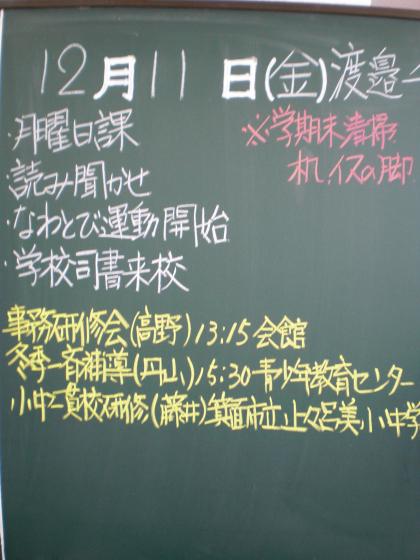 12月11日(金)渡邉
・月曜日課
※学期末清掃
・読み聞かせ
机、イスの脚
・なわとび運動開始
・学校司書来校
事務研修会(高野)13:15会館
冬季一斉補導(円山)15:30青少年教育センター
小中一貫校研修(藤井)箕面市立止々呂美小中学